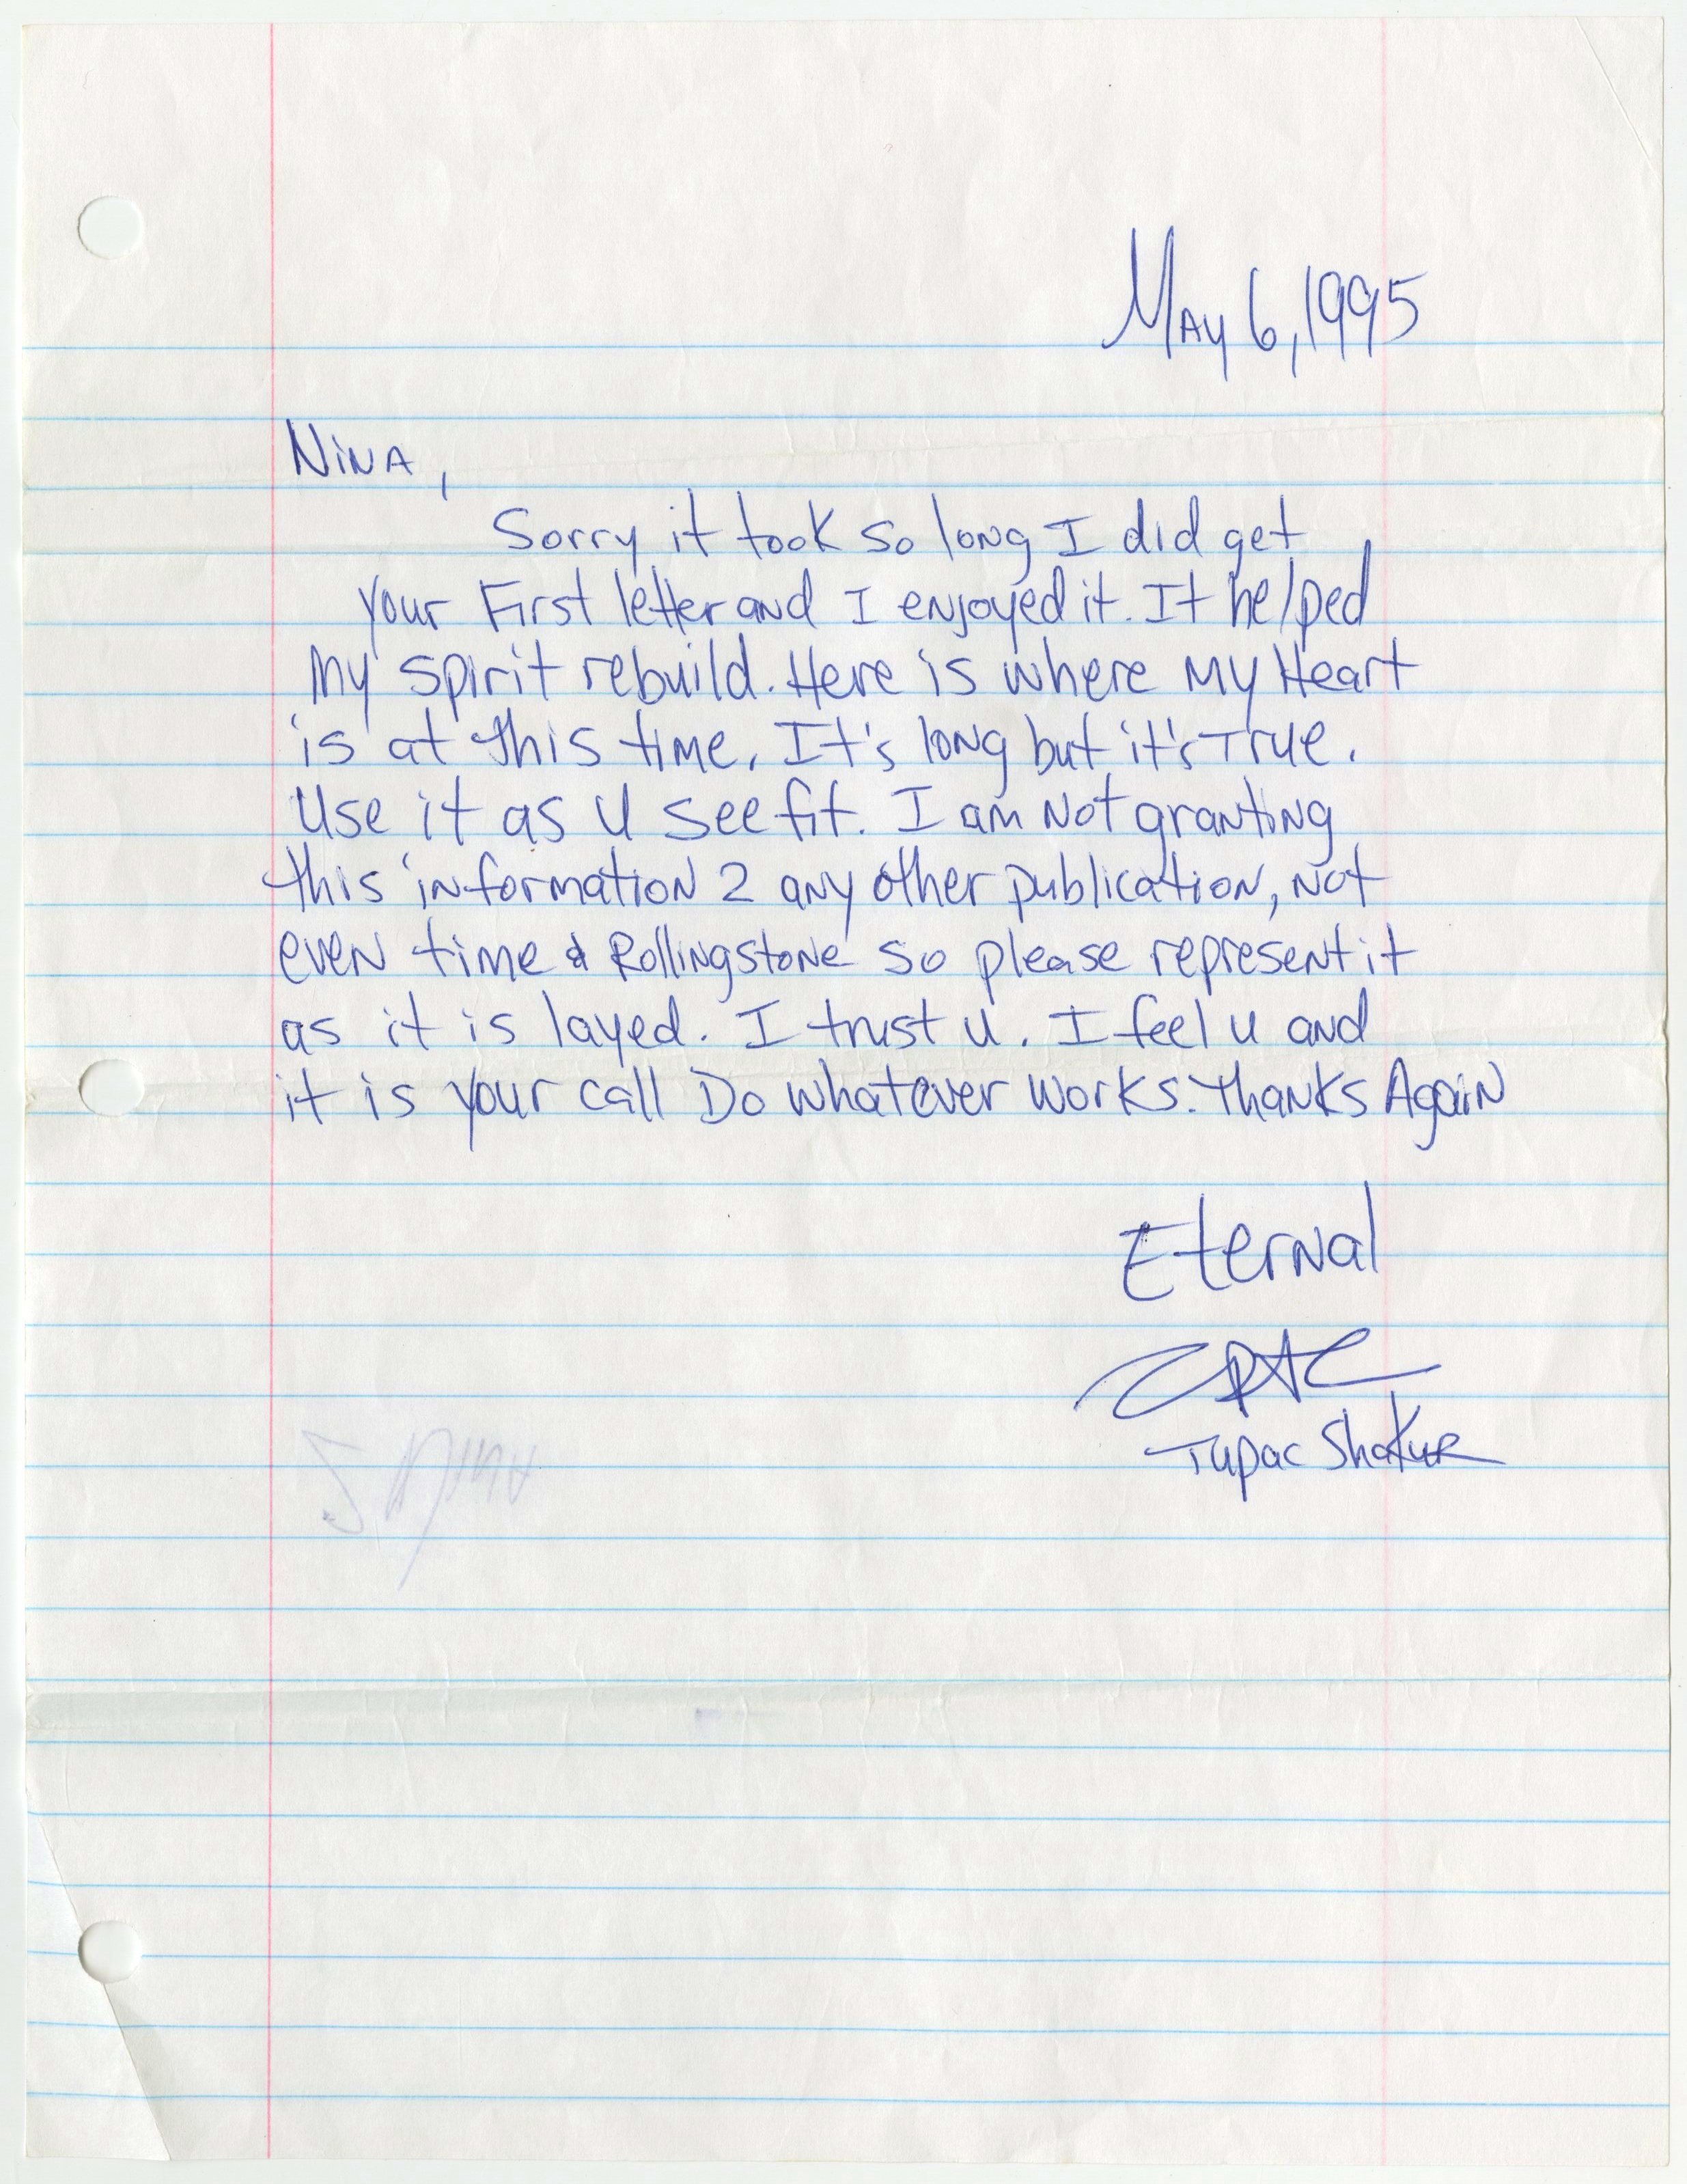 May 6, 1995
Nina,
Sorry it took so long I did get
your First letter and I enjoyed it. It helped
my spirit rebuild. Here is where my Heart
is at this time. It's long but it's True.
Use it as U see fit. I am Not granting
this information 2 any other publication, not
even time & Rollingstone so please represent it
as it is layed. I trust U. I feel U and
it is your call Do whatever works. Thanks Again
Eternal
2PAC
Tupac Shakur